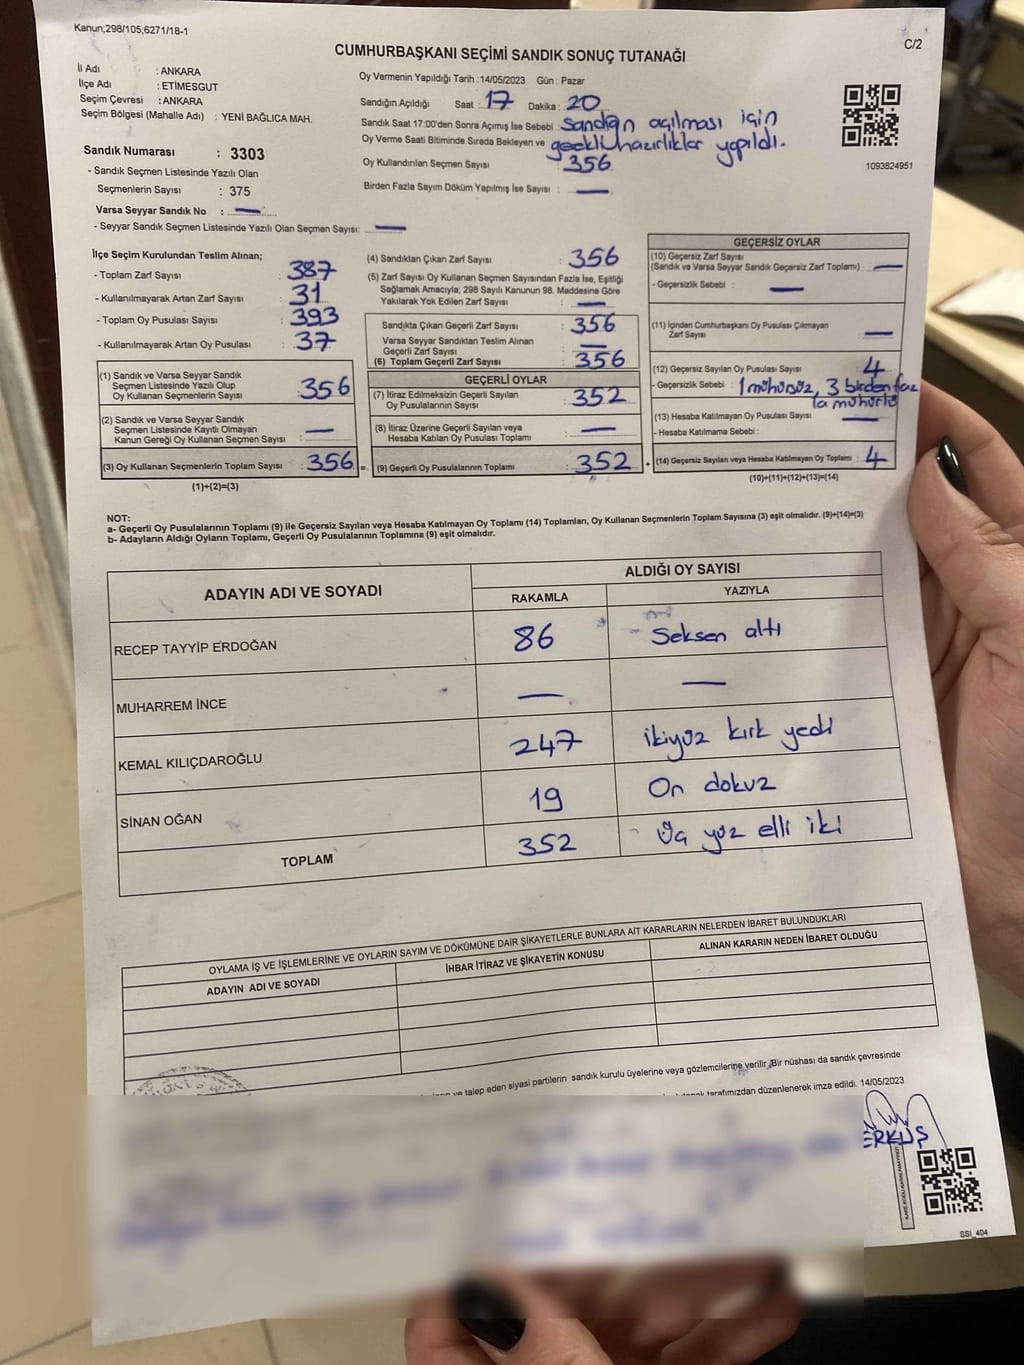 Kanun;298/105;6271/18-1
C/2
CUMHURBAŞKANI SEÇİMİ SANDIK SONUÇ TUTANAĞI
İl Adı : ANKARA
İlçe Adı : ETİMESGUT
Seçim Çevresi : ANKARA
Seçim Bölgesi (Mahalle Adı) : YENİ BAĞLICA MAH.
Sandık Numarası : 3303
- Sandık Seçmen Listesinde Yazılı Olan
Seçmenlerin Sayısı : 375
Varsa Seyyar Sandık No : —
- Seyyar Sandık Seçmen Listesinde Yazılı Olan Seçmen Sayısı: —
Oy Vermenin Yapıldığı Tarih :14/05/2023 Gün : Pazar
Sandığın Açıldığı Saat : 17 Dakika : 20
Sandık Saat 17:00'den Sonra Açımış İse Sebebi : Sandığın açılması için
Oy Verme Saati Bitiminde Sırada Bekleyen ve gerekli hazırlıklar yapıldı.
Oy Kullandırılan Seçmen Sayısı : 356
Birden Fazla Sayım Döküm Yapılmış İse Sayısı : —
1093824951
İlçe Seçim Kurulundan Teslim Alınan;
- Toplam Zarf Sayısı : 387
- Kullanılmayarak Artan Zarf Sayısı : 31
- Toplam Oy Pusulası Sayısı : 393
- Kullanılmayarak Artan Oy Pusulası : 37
(1) Sandık ve Varsa Seyyar Sandık
Seçmen Listesinde Yazılı Olup
Oy Kullanan Seçmenlerin Sayısı : 356
(2) Sandık ve Varsa Seyyar Sandık
Seçmen Listesinde Kayıtlı Olmayan
Kanun Gereği Oy Kullanan Seçmen Sayısı : —
(3) Oy Kullanan Seçmenlerin Toplam Sayısı : 356 =
(1)+(2)=(3)
(4) Sandıktan Çıkan Zarf Sayısı : 356
(5) Zarf Sayısı Oy Kullanan Seçmen Sayısından Fazla İse, Eşitliği
Sağlamak Amacıyla; 298 Sayılı Kanunun 98. Maddesine Göre
Yakılarak Yok Edilen Zarf Sayısı : —
Sandıkta Çıkan Geçerli Zarf Sayısı : 356
Varsa Seyyar Sandıktan Teslim Alınan
Geçerli Zarf Sayısı : —
(6) Toplam Geçerli Zarf Sayısı : 356
GEÇERLİ OYLAR
(7) İtiraz Edilmeksizin Geçerli Sayılan
Oy Pusulalarının Sayısı : 352
(8) İtiraz Üzerine Geçerli Sayılan veya
Hesaba Katılan Oy Pusulası Toplamı : —
(9) Geçerli Oy Pusulalarının Toplamı : 352 +
GEÇERSİZ OYLAR
(10) Geçersiz Zarf Sayısı
(Sandık ve Varsa Seyyar Sandık Geçersiz Zarf Toplamı) : —
- Geçersizlik Sebebi : —
(11) İçinden Cumhurbaşkanı Oy Pusulası Çıkmayan
Zarf Sayısı : —
(12) Geçersiz Sayılan Oy Pusulası Sayısı : 4
- Geçersizlik Sebebi : 1 mühürsüz, 3 birden faz
la mühürlü
(13) Hesaba Katılmayan Oy Pusulası Sayısı : —
- Hesaba Katılmama Sebebi :
(14) Geçersiz Sayılan veya Hesaba Katılmayan Oy Toplamı : 4
(10)+(11)+(12)+(13)=(14)
NOT:
a- Geçerli Oy Pusulalarının Toplamı (9) ile Geçersiz Sayılan veya Hesaba Katılmayan Oy Toplamı (14) Toplamları, Oy Kullanan Seçmenlerin Toplam Sayısına (3) eşit olmalıdır. (9)+(14)=(3)
b- Adayların Aldığı Oyların Toplamı, Geçerli Oy Pusulalarının Toplamına (9) eşit olmalıdır.
ADAYIN ADI VE SOYADI ALDIĞI OY SAYISI
RAKAMLA YAZIYLA
RECEP TAYYİP ERDOĞAN 86 Seksen altı
MUHARREM İNCE — —
KEMAL KILIÇDAROĞLU 247 ikiyüz kırk yedi
SİNAN OĞAN 19 On dokuz
TOPLAM 352 Üç yüz elli iki
OYLAMA İŞ VE İŞLEMLERİNE VE OYLARIN SAYIM VE DÖKÜMÜNE DAİR ŞİKAYETLERLE BUNLARA AİT KARARLARIN NELERDEN İBARET BULUNDUKLARI
ADAYIN ADI VE SOYADI İHBAR İTİRAZ VE ŞİKAYETİN KONUSU ALINAN KARARIN NEDEN İBARET OLDUĞU
ve talep eden siyasi partilerin sandık kurulu üyelerine veya gözlemcilerine verilir. Bir nüshası da sandık çevresinde
tarafımızdan düzenlenerek imza edildi. 14/05/2023
ERKUŞ
SSI_404